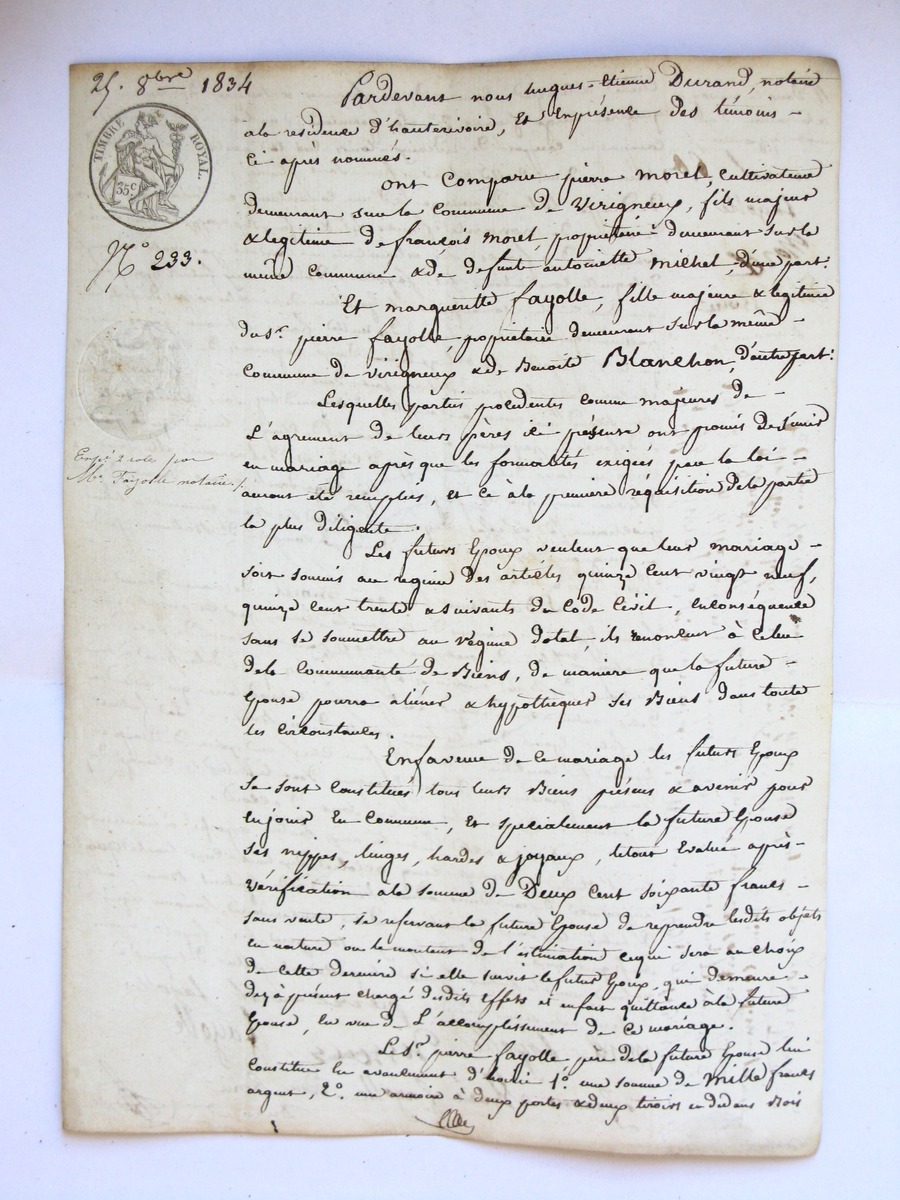 25. 8bre 1834
TIMBRE ROYAL.
35c
No 233.
Expé 2 roles por
Me Fayolle notaire
Pardevant nous hugues-Etienne Durand, notaire
ala residence d'hauterivoire, Et Enprésence des témoins -
Ci après nommés.
Ont Comparu pierre morel, Cultivateur
demeurant sur la Commune de Virigneux, fils majeur
& legitime de françois morel, propriétaire demeurant sur la
même Commune & de defunte antoinette Michel, d'une part.
Et marguerite fayolle, fille majeure & legitime
du Sr pierre fayolle, propriétaire demeurant sur la même -
Commune de virigneux & de Benoite Blanchon, d'autre part.
Lesquelles parties procedentes comme majeures de -
L'agrement de leurs pères ici présens ont promis de S'unir
en mariage après que les formalités exigées par la loi -
auront été remplies, et Ce à la première réquisition de la partie
la plus diligente.
Les futurs Epoux veulent que leur mariage -
soit soumis au regime des articles quinze cent vingt neuf,
quinze cent trente & suivants du Code Civil, Enconséquence
sans se soumettre au régime dotal, ils renoncent à Celui
dela Communauté de Biens, de maniere que la future -
Epouse pourra aliéner & hypothèquer ses Biens dans toute
les circonstances.
Enfaveur de Ce mariage les futurs Epoux
se sont Constitués tous leurs Biens présens & avenir pour
En jouir En Commun, Et spécialement la future Epouse
ses nippes, linges, hardes & joyaux, letout Evalué après -
vérification ala somme de Deux Cent soixante francs -
sans vente, se reservant la future Epouse de reprendre lesdits objets
en nature ou le montent de l'estimation cequi sera au choix
de cette derniere si elle survit le futur Epoux, qui demeure -
dez à présent chargé desdits Effets et enfait quittance à la future
Epouse, En vue de L'accomplissement de Ce mariage.
Le Sr pierre fayolle père dela future Epouse lui
Constitue En avancement d'hoirie 1o une somme de Mille francs
argent, 2o une armoire à deux portes & deux tiroirs en dedans Bois